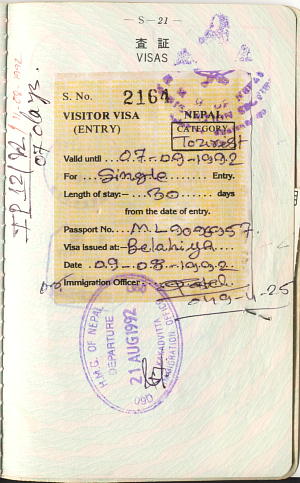 — S—21 —
査 証
VISAS
S. No. 2164
VISITOR VISA
(ENTRY)
NEPAL
CATEGORY
Tourist
Valid until 07-09-1992
For Single Entry.
Length of stay:- 30 days
from the date of entry.
Passport No. ML9098957.
Visa issued at:- Belahiya
Date 09-08-1992
Immigration Officer
H.M.G. OF NEPAL
DEPARTURE
21 AUG 1992
KAKADVITTA
IMMIGRATION OFFICE
07 days.